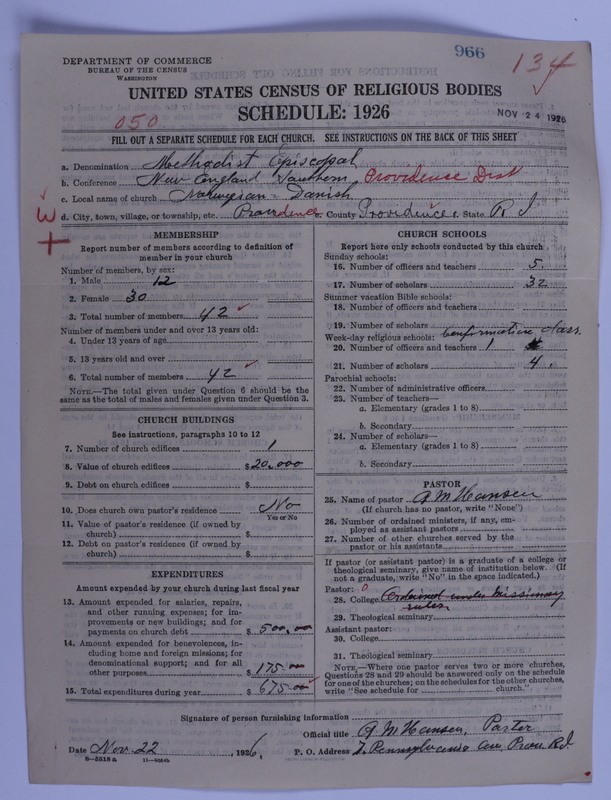 966
134
DEPARTMENT OF COMMERCE
BUREAU OF THE CENSUS
WASHINGTON
UNITED STATES CENSUS OF RELIGIOUS BODIES
SCHEDULE: 1926
NOV 24 1926
050
FILL OUT A SEPARATE SCHEDULE FOR EACH CHURCH. SEE INSTRUCTIONS ON THE BACK OF THIS SHEET
a. Denomination Methodist Episcopal
b. Conference New England Southern Providence Dist
c. Local name of church Norwegian-Danish
d. City, town, village, or township, etc. Providence County Providence State R I
MEMBERSHIP
Report number of members according to definition of member in your church
Number of members, by sex:
1. Male 12
2. Female 30
3. Total number of members 42
Number of members under and over 13 years old:
4. Under 13 years of age
5. 13 years old and over
6. Total number of members 42
NOTE.—The total given under Question 6 should be the same as the total of males and females given under Question 3.
CHURCH BUILDINGS
See instructions, paragraphs 10 to 12
7. Number of church edifices 1
8. Value of church edifices $20.000
9. Debt on church edifices $
10. Does church own pastor's residence No
Yes or No
11. Value of pastor's residence (if owned by church) $
12. Debt on pastor's residence (if owned by church) $
EXPENDITURES
Amount expended by church during last fiscal year
13. Amount expended for salaries, repairs, and other running expenses; for improvements or new buildings; and for payments on church debt $500.00
14. Amount expended for benevolences, including home and foreign missions; for denominational support; and for all other purposes $175.00
15. Total expenditures during year $675.00
CHURCH SCHOOLS
Report here only schools conducted by this church
Sunday schools:
16. Number of officers and teachers 5.
17. Number of scholars 32
Summer vacation Bible schools:
18. Number of officers and teachers
19. Number of scholars
Week-day religious schools: Confirmation Class.
20. Number of officers and teachers 1
21. Number of scholars 4.
Parochial schools:
22. Number of administrative officers
23. Number of teachers—
a. Elementary (grades 1 to 8)
b. Secondary
24. Number of scholars—
a. Elementary (grades 1 to 8)
b. Secondary
PASTOR
25. Name of pastor A M Hansen
(If church has no pastor, write "None")
26. Number of ordained ministers, if any, employed as assistant pastors
27. Number of other churches served by the pastor or his assistants
If pastor (or assistant pastor) is a graduate of a college or theological seminary, give name of institution below. (If not a graduate, write "No" in the space indicated.)
Pastor: 0
28. College Ordained under missionary rules
29. Theological seminary
Assistant pastor:
30. College
31. Theological seminary
NOTE.—Where one pastor serves two or more churches, Questions 28 and 29 should be answered only on the schedule for one of the churches; on the schedules for the other churches, write "See schedule for church."
Signature of person furnishing information
Official title A M Hansen, Pastor
Date Nov. 22, 1926,
P. O. Address Pennsylvania Ave, Prov. R.I.
8—5518a